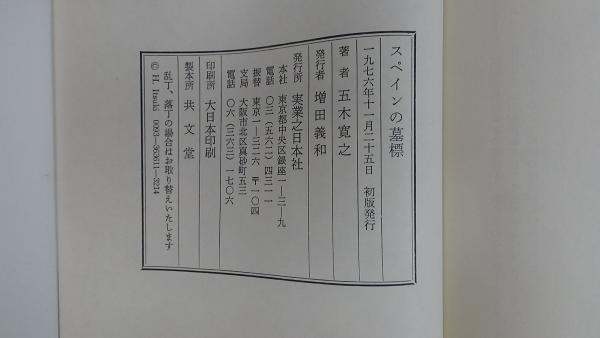 スペインの墓標
一九七六年十一月二十五日 初版発行
著者 五木寛之
発行者 増田義和
発行所 実業之日本社
本社 東京都中央区銀座一―三―九
電話 〇三(五六二)四三一一
振替 東京一―三二六 〒一〇四
支局 大阪市北区真砂町五三
電話 〇六(三六三)一七〇六
印刷所 大日本印刷
製本所 共文堂
乱丁、落丁の場合はお取り替えいたします
© H. Itsuki 0093―363611―3214